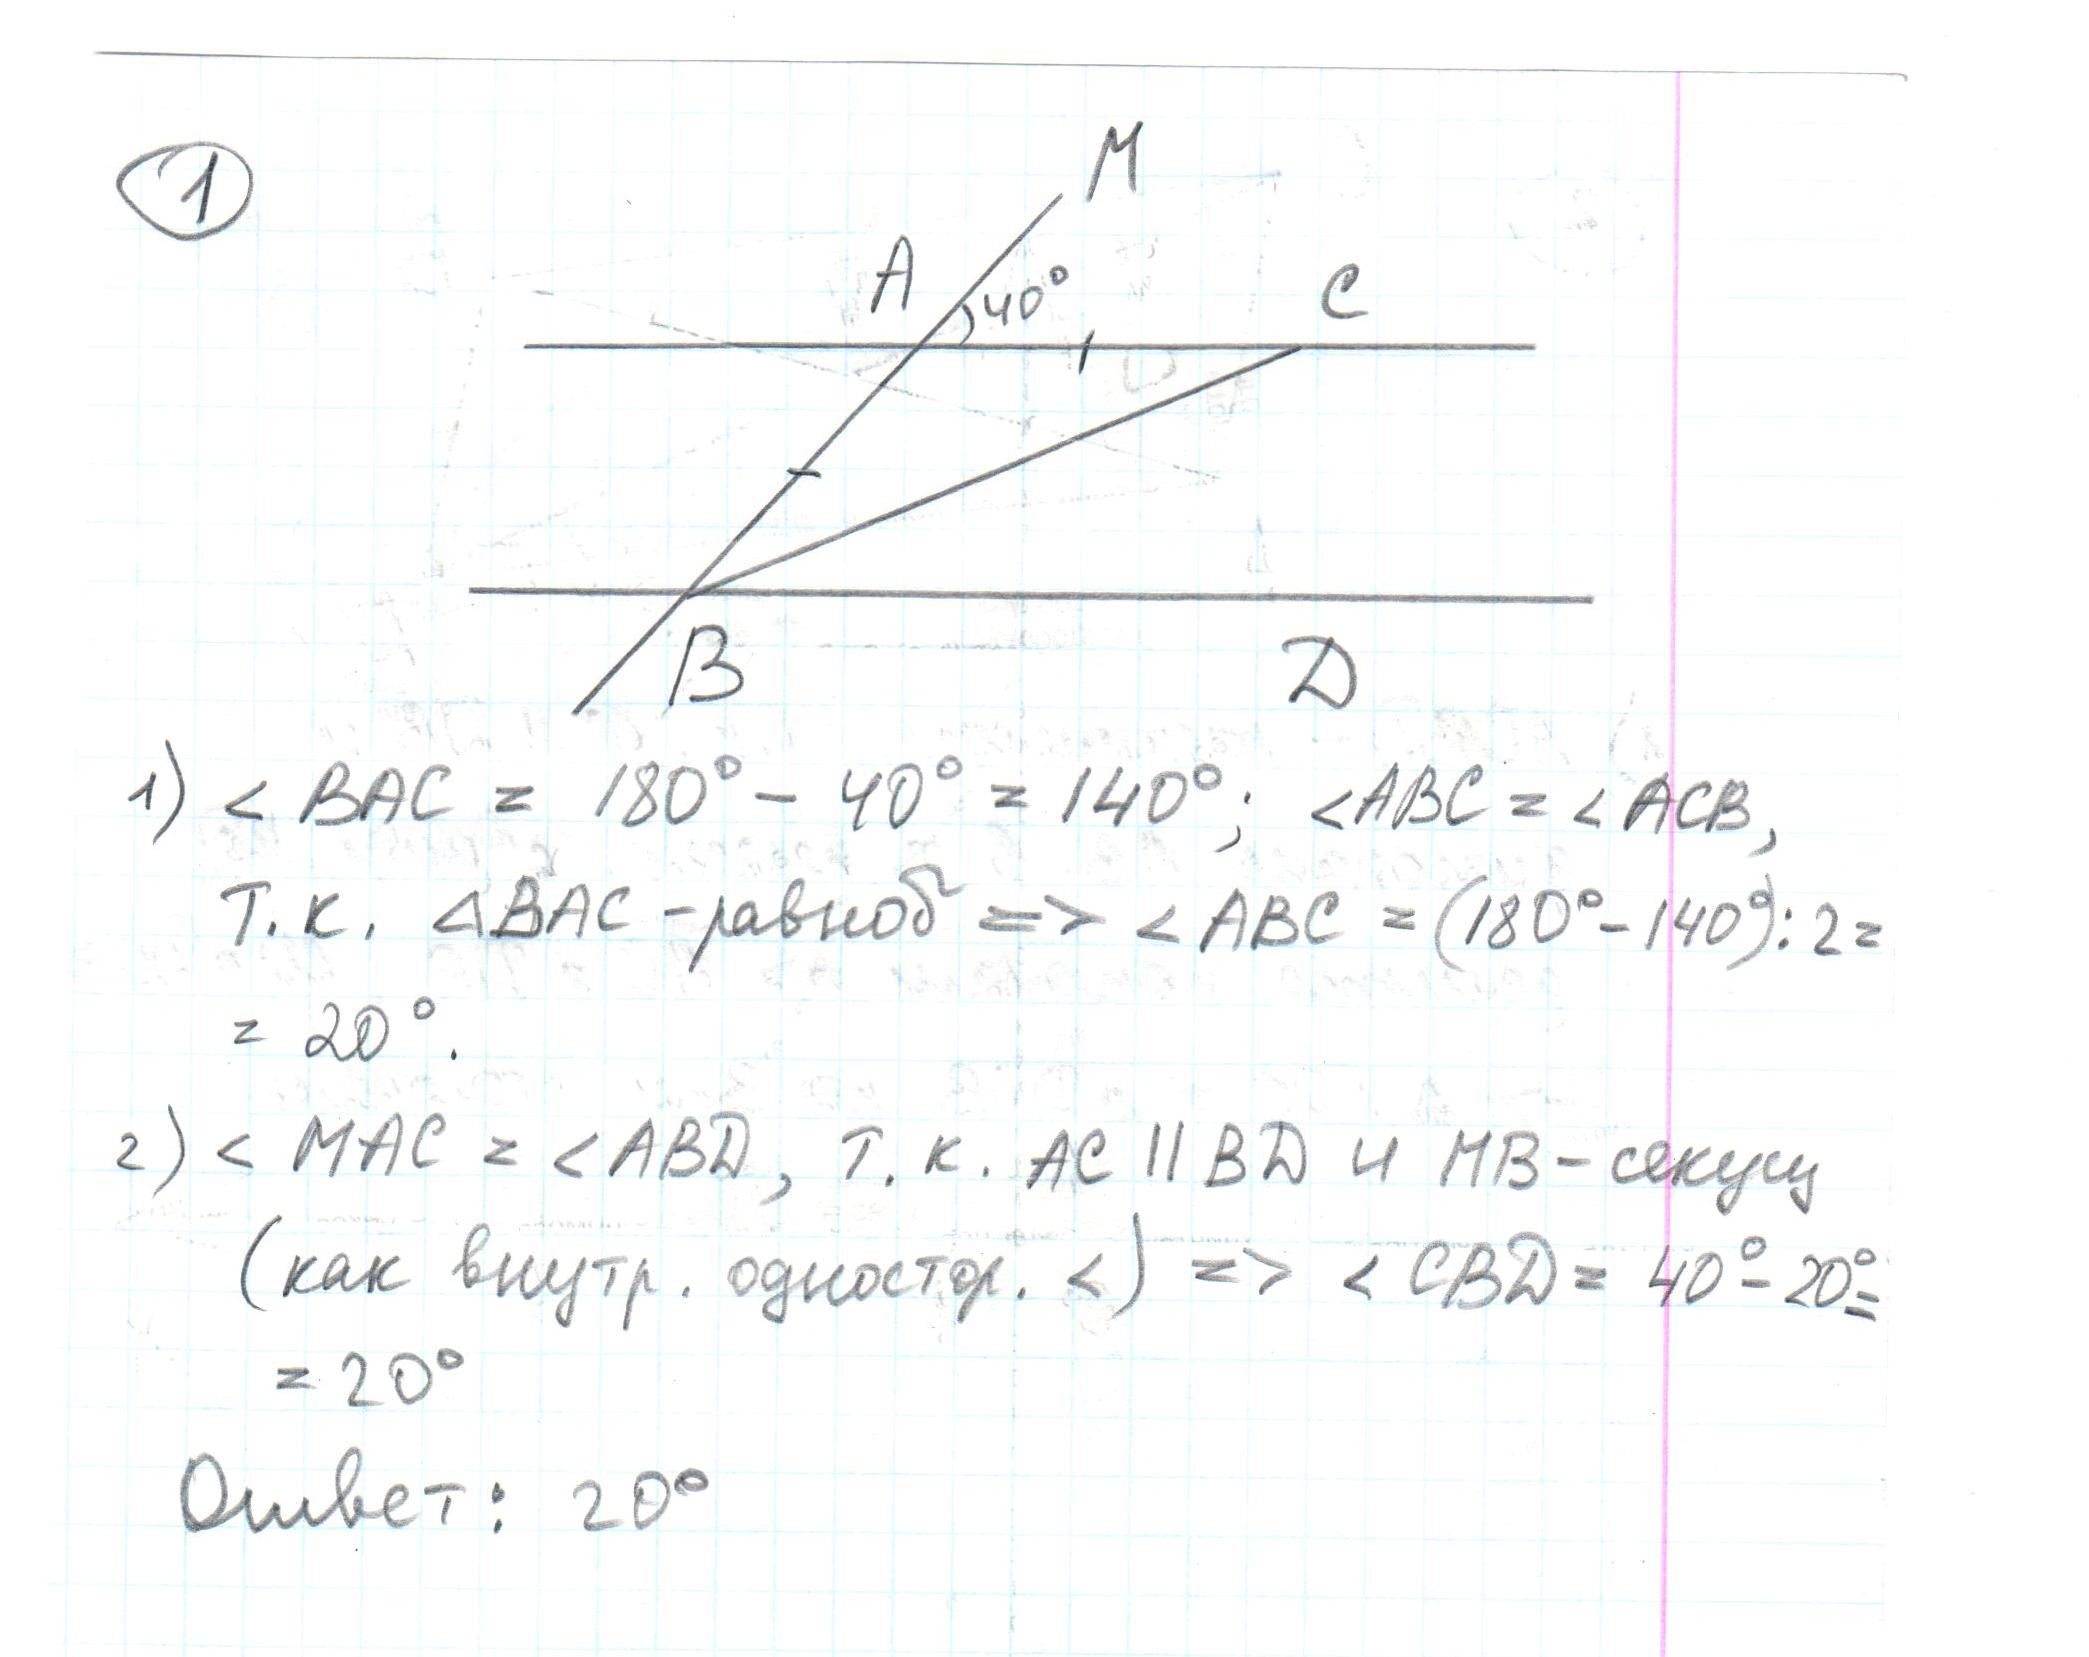 1
M
A 40° C
B D
1) < BAC = 180° - 40° = 140°; <ABC = <ACB,
т.к. △BAC - равноб => <ABC = (180° - 140°) : 2 =
= 20°.
2) < MAC = <ABD, т.к. AC || BD и MB - секущ
(как внутр. одностор. <) => <CBD = 40° - 20° =
= 20°
Ответ: 20°